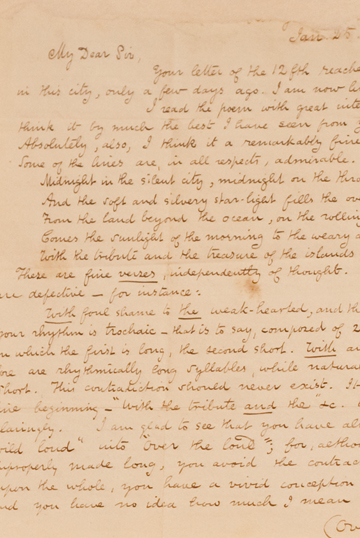 Jan 25.
My Dear Sir,
Your letter of the 12th reache
in this city, only a few days ago. I am now liv
I read the poem with great inte
think it by much the best I have seen from y
Absolutely, also, I think it a remarkably fine
Some of the lines are, in all respects, admirable.
Midnight in the silent city, midnight on the thro
And the soft and silvery star-light fills the ov
From the land beyond the ocean, on the rolling
Comes the sunlight of the morning to the weary a
With the tribute and the treasure of the islands
These are fine verses, independently of thought.
are defective — for instance:
With foul shame to the weak-hearted, and th
your rhythm is trochaic — that is to say, composed of 2
in which the first is long, the second short. With an
fore are rhythmically long syllables, while natura
short. This contradiction should never exist. It
line beginning — "With the tribute and the" &c.
I am glad to see that you have al
loud" into "over the loud"; for, althou
improperly made long, you avoid the contrad
upon the whole, you have a vivid conception
and you have no idea how much I mean
(Ov